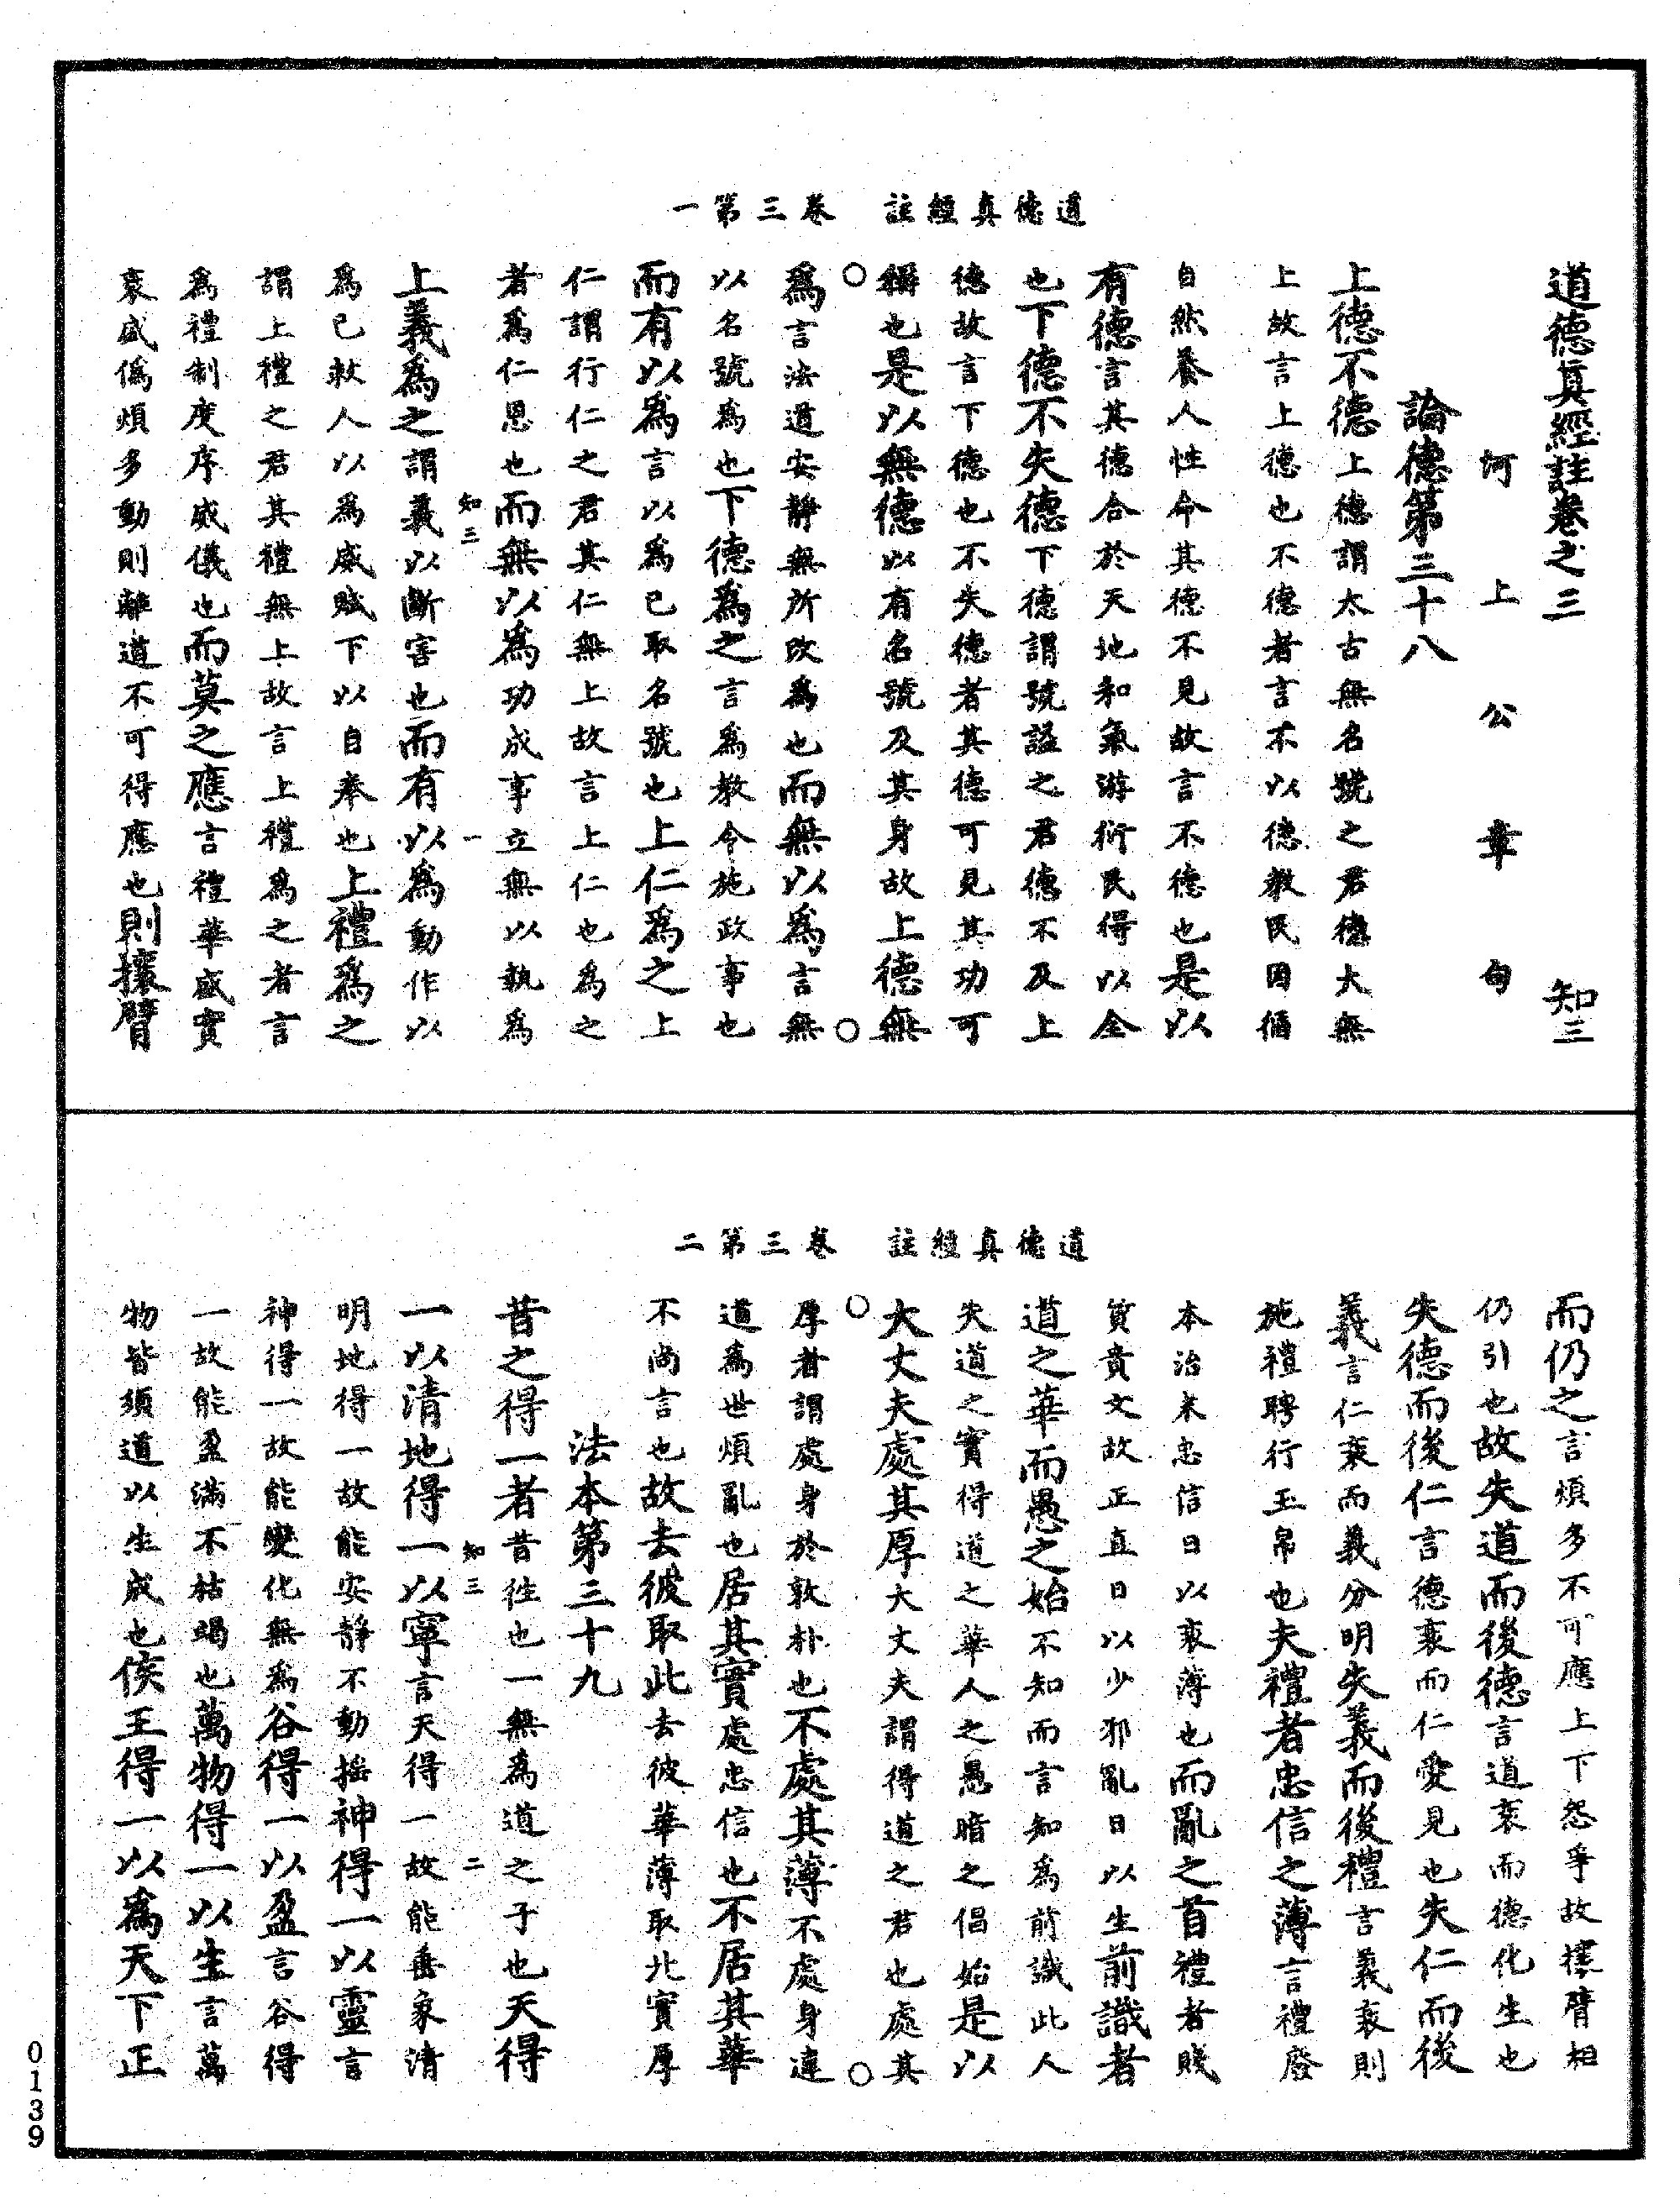 道德真經註　卷三第一
道德眞經註卷之三　知三
河上公章句
論德第三十八
上德不德上德謂太古無名號之君德大無
上故言上德也不德者言不以德教民因循
自然養人性命其德不見故言不德也是以
有德言其德合於天地和氣游衍民得以全
也下德不失德下德謂號謚之君德不及上
德故言下德也不失德者其德可見其功可
稱也是以無德以有名號及其身故上德無
爲言法道安靜無所改爲也而無以爲言無
以名號爲也下德爲之言爲教令施政事也
而有以爲言以爲己取名號也上仁爲之上
仁謂行仁之君其仁無上故言上仁也爲之
者爲仁恩也而無以爲功成事立無以執爲
知三　一
上義爲之謂義以斷害也而有以爲動作以
爲己敕人以爲威賊下以自奉也上禮爲之
謂上禮之君其禮無上故言上禮爲之者言
爲禮制度序威儀也而莫之應言禮華盛實
衰盛僞煩多動則離道不可得應也則攘臂
道德真經註　卷三第二
而仍之言煩多不可應上下忿爭故攘臂相
仍引也故失道而後德言道衰而德化生也
失德而後仁言德衰而仁愛見也失仁而後
義言仁衰而義分明失義而後禮言義衰則
施禮聘行玉帛也夫禮者忠信之薄言禮廢
本治末忠信日以衰薄也而亂之首禮者賤
質貴文故正直日以少邪亂日以生前識者
道之華而愚之始不知而言知爲前識此人
失道之實得道之華人之愚暗之倡始是以
大丈夫處其厚大大丈夫謂得道之君也處其
厚者謂處身於敦朴也不處其薄不處身違
道爲世煩亂也居其實處忠信也不居其華
不尚言也故去彼取此去彼華薄取此實厚
法本第三十九
昔之得一者昔往也一無爲道之子也天得
知三　二
一以清地得一以寧言天得一故能垂象清
明地得一故能安靜不動搖神得一以靈言
神得一故能變化無爲谷得一以盈言谷得
一故能盈滿不枯竭也萬物得一以生言萬
物皆須道以生成也侯王得一以爲天下正
0139